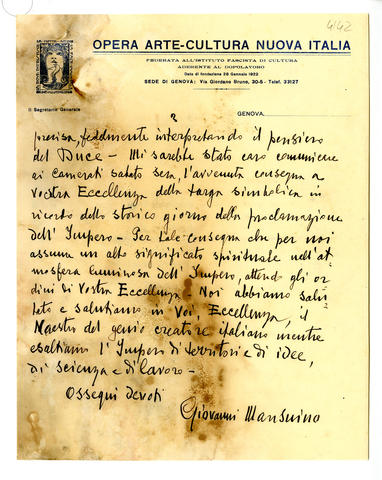 4142
OPERA ARTE-CULTURA NUOVA ITALIA
FEDERATA ALL'ISTITUTO FASCISTA DI CULTURA
ADERENTE AL DOPOLAVORO
Data di fondazione 26 Gennaio 1922
SEDE DI GENOVA: Via Giordano Bruno, 30-5 - Telef. 33127
Il Segretario Generale
GENOVA
2
precisa, fedelmente interpretando il pensiero
del Duce - Mi sarebbe stato caro comunicare
ai camerati sabato sera, l'avvenuta consegna a
Vostra Eccellenza della targa simbolica in
ricordo dello storico giorno della proclamazione
dell'Impero - Per tale consegna che per noi
assume un alto significato spirituale nell'at-
mosfera luminosa dell'Impero, attendo gli or-
dini di Vostra Eccellenza - Noi abbiamo salu-
tato e salutiamo in Voi, Eccellenza, il
Maestro del genio creatore italiano mentre
esaltiamo l'Impero di territori e di idee,
di scienza e di lavoro -
Ossequi devoti
Giovanni Mansuino